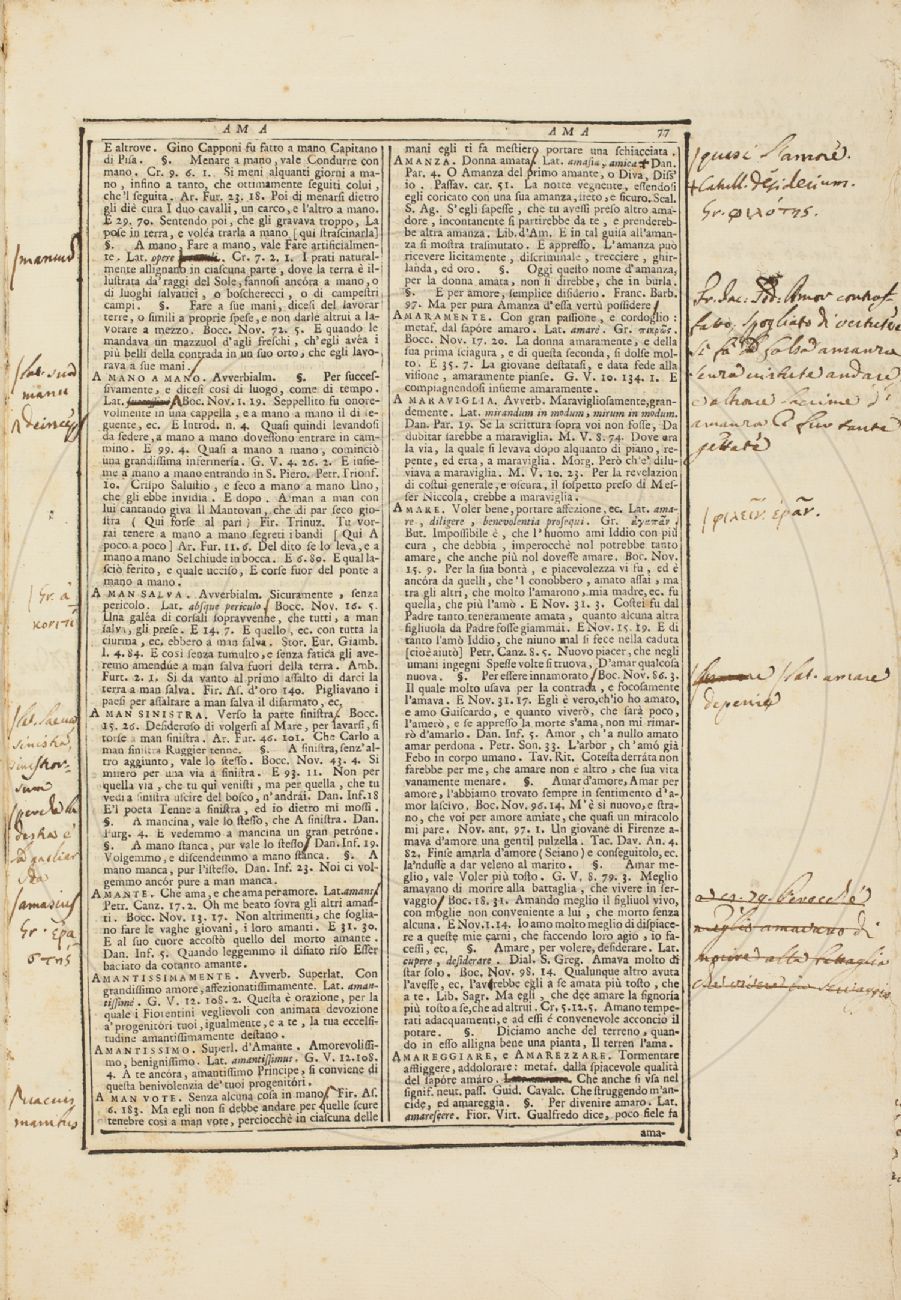 AMA
AMA 77
E altrove. Gino Capponi fu fatto a mano Capitano
di Pisa. §. Menare a mano, vale Condurre con
mano. Cr. 9. 6. 1. Si meni alquanti giorni a ma-
no, infino a tanto, che ottimamente seguiti colui,
che'l seguita. Ar. Fur. 23. 18. Poi di menarsi dietro
gli diè cura I duo cavalli, un carco, e l'altro a mano.
E 29. 70. Sentendo poi, che gli gravava troppo, La
pose in terra, e voléa trarla a mano [qui strascinarla]
§. A mano, Fare a mano, vale Fare artificialmen-
te. Lat. opere Cr. 7. 2. 1. I prati natural-
mente allignano in ciascuna parte, dove la terra è il-
lustrata da' raggi del Sole, fannosi ancóra a mano, o
di luoghi salvatici, o boscherecci, o di campestri
campi. §. Fare a sue mani, dicesi del lavorar
terre, o simili a proprie spese, e non darle altrui a la-
vorare a mezzo. Bocc. Nov. 72. 5. E quando le
mandava un mazzuol d'agli freschi, ch'egli avéa i
più belli della contrada in un suo orto, che egli lavo-
rava a sue mani.
A MANO AMANO. Avverbialm. §. Per succes-
sivamente, e dicesi così di luogo, come di tempo.
Lat. Bocc. Nov. 1. 19. Seppellito fu onore-
volmente in una cappella, e a mano a mano il dì se-
guente, ec. E Introd. n. 4. Quasi quindi levandosi
da sedere, a mano a mano dovessono entrare in cam-
mino. E 99. 4. Quasi a mano a mano, cominciò
una grandissima infermeria. G. V. 4. 26. 2. E insie-
me a mano a mano entrando in S. Piero. Petr. Trionf.
10. Crispo Salustio, e seco a mano a mano Uno,
che gli ebbe invidia. E dopo. A man a man con
lui cantando giva Il Mantovan, che di par seco gio-
stra (Qui forse al pari) Fir. Trinuz. Tu vor-
rai tenere a mano a mano segreti i bandi [Qui A
poco a poco] Ar. Fur. 11. 6. Del dito se lo leva, e a
mano a mano Sel chiude in bocca. E 6. 80. E qual la-
sciò ferito, e quale ucciso, E corse fuor del ponte a
mano a mano.
A MAN SALVA. Avverbialm. Sicuramente, senza
pericolo. Lat. absque periculo. Bocc. Nov. 16. 5.
Una galéa di corsali sopravvenne, che tutti, a man
salva, gli prese. E 14. 7. E quello, ec. con tutta la
ciurma, ec. ebbero a man salva. Stor. Eur. Giamb.
l. 4. 84. E così senza tumulto, e senza fatica gli ave-
remo amendúe a man salva fuori della terra. Amb.
Furt. 2. 1. Si da vanto al primo assalto di darci la
terra a man salva. Fir. As. d'oro 140. Pigliavano i
paesi per assaltare a man salva il disarmato, ec.
A MAN SINISTRA. Verso la parte sinistra. Bocc.
15. 26. Desideroso di volgersi al Mare, per lavarsi, si
torse a man sinistra. Ar. Fur. 46. 101. Che Carlo a
man sinistra Ruggier tenne. §. A sinistra, senz'al-
tro aggiunto, vale lo stesso. Bocc. Nov. 43. 4. Si
misero per una via a sinistra. E 93. 11. Non per
quella via, che tu qui venisti, ma per quella, che tu
vedi a sinistra uscire del bosco, n'andrai. Dan. Inf. 18
E'l poeta Tenne a sinistra, ed io dietro mi mossi.
§. A mancina, vale lo stesso, che A sinistra. Dan.
Purg. 4. E vedemmo a mancina un gran petróne.
§. A mano stanca, pur vale lo stesso. Dan. Inf. 19.
Volgemmo, e discendemmo a mano stanca. §. A
mano manca, pur l'istesso. Dan. Inf. 23. Noi ci vol-
gemmo ancór pure a man manca.
AMANTE. Che ama, e che ama per amore. Lat. amans
Petr. Canz. 17. 2. Oh me beato sovra gli altri aman-
ti. Bocc. Nov. 13. 17. Non altrimenti, che soglia-
no fare le vaghe giovani, i loro amanti. E 31. 30.
E al suo cuore accostò quello del morto amante.
Dan. Inf. 5. Quando leggemmo il disiato riso Esser
baciato da cotanto amante.
AMANTISSIMAMENTE. Avverb. Superlat. Con
grandissimo amore, affezionatissimamente. Lat. aman-
tissimè. G. V. 12. 108. 2. Questa è orazione, per la
quale i Fiorentini veglievoli con animata devozione
a' progenitori tuoi, igualmente, e a te, la tua eccelsi-
tudine amantissimamente destano.
AMANTISSIMO. Superl. d'Amante. Amorevolissi-
mo, benignissimo. Lat. amantissimus. G. V. 12. 108.
4. A te ancóra, amantissimo Principe, si conviene di
questa benivolenzia de' tuoi progenitori.
A MAN VOTE. Senza alcuna cosa in mano. Fir. As.
6. 183. Ma egli non si debbe andare per quelle scure
tenebre così a man vote, perciocchè in ciascuna delle
mani egli ti fa mestiero portare una schiacciata.
AMANZA. Donna amata. Lat. amasia, amica. Dan.
Par. 4. O Amanza del primo amante, o Diva, Diss'
io. Passav. car. 51. La notte vegnente, essendosi
egli coricato con una sua amanza, lieto, e sicuro. Scal.
S. Ag. S'egli sapesse, che tu avessi preso altro ama-
dore, incontanente si partirebbe da te, e prenderéb-
be altra amanza. Lib. d'Am. E in tal guisa all'aman-
za si mostra trasmutato. E appresso. L'amanza può
ricevere licitamente, discriminale, trecciere, ghir-
landa, ed oro. §. Oggi questo nome d'amanza,
per la donna amata, non si direbbe, che in burla.
§. E per amore, semplice disiderio. Franc. Barb.
97. Ma per pura Amanza d'essa vertù possidere
AMARAMENTE. Con gran passione, e cordoglio:
metaf. dal sapóre amaro. Lat. amarè. Gr. πικρῶς.
Bocc. Nov. 17. 20. La donna amaramente, e della
sua prima sciagura, e di questa seconda, si dolse mol-
to. E 35. 7. La giovane destatasi, e data fede alla
visione, amaramente pianse. G. V. 10. 134. 1. E
compiagnendosi insieme amaramente.
A MARAVIGLIA. Avverb. Maravigliosamente, gran-
demente. Lat. mirandum in modum, mirum in modum.
Dan. Par. 19. Se la scrittura sopra voi non fosse, Da
dubitar sarebbe a maraviglia. M. V. 8. 74. Dove era
la via, la quale si levava dopo alquanto di piano, re-
pente, ed erta, a maraviglia. Morg. Però ch'e' dilu-
viava a maraviglia. M. V. 10. 23. Per la revelazion
di costui generale, e oscura, il sospetto preso di Mes-
ser Niccola, crebbe a maraviglia.
AMARE. Voler bene, portare affezione, ec. Lat. ama-
re, diligere, benevolentia prosequi. Gr. ἀγαπᾶν.
But. Impossibile è, che l'huomo ami Iddio con più
cura, che debbia, imperocchè nol potrebbe tanto
amare, che anche più nol dovesse amare. Boc. Nov.
15. 9. Per la sua bontà, e piacevolezza vi fu, ed è
ancóra da quelli, che'l conobbero, amato assai, ma
tra gli altri, che molto l'amarono, mia madre, ec. fu
quella, che più l'amò. E Nov. 31. 3. Costei fu dal
Padre tanto teneramente amata, quanto alcuna altra
figliuola da Padre fosse giammai. E Nov. 15. 19. E di
tanto l'amò Iddio, che niuno mal si fece nella caduta
(cioè aiutò] Petr. Canz. 8. 5. Nuovo piacer, che negli
umani ingegni Spesse volte si truova, D'amar qualcosa
nuova. §. Per essere innamorato. Boc. Nov. 86. 3.
Il quale molto usava per la contrada, e focosamente
l'amava. E Nov. 31. 17. Egli è vero, ch'io ho amato,
e amo Guiscardo, e quanto viverò, che sarà poco,
l'amerò, e se appresso la morte s'ama, non mi rimar-
rò d'amarlo. Dan. Inf. 5. Amor, ch'a nullo amato
amar perdona. Petr. Son. 33. L'arbor, ch'amó già
Febo in corpo umano. Tav. Rit. Cotesta derráta non
farebbe per me, che amare non è altro, che sua vita
vanamente menare. §. Amar d'amore, Amar per
amore, l'abbiamo trovato sempre in sentimento d'a-
mor lascivo. Boc. Nov. 96. 14. M'è sì nuovo, e stra-
no, che voi per amore amiate, che quasi un miracolo
mi pare. Nov. ant. 97. 1. Un giovane di Firenze a-
mava d'amore una gentil pulzella. Tac. Dav. An. 4.
82. Finse amarla d'amore (Seiano) e conseguitolo, ec.
la'ndusse a dar veleno al marito. §. Amar me-
glio, vale Voler più tosto. G. V. 8. 79. 3. Meglio
amavano di morire alla battaglia, che vivere in ser-
vaggio. Boc. 18. 31. Amando meglio il figliuol vivo,
con moglie non conveniente a lui, che morto senza
alcuna. E Nov. 1. 14. Io amo molto meglio di dispiace-
re a queste mie carni, che faccendo loro agio, io fa-
cessi, ec. §. Amare, per volere, desiderare. Lat.
cupere, desiderare. Dial. S. Greg. Amava molto di
star solo. Boc. Nov. 98. 14. Qualunque altro avuta
l'avesse, ec. l'avrebbe egli a se amata più tosto, che
a te. Lib. Sagr. Ma egli, che dee amare la signoria
più tosto a se, che ad altrui. Cr. 5. 12. 5. Amano tempe-
rati adacquamenti, e ad essi è convenevole acconcio il
potare. §. Diciamo anche del terreno, quan-
do in esso alligna bene una pianta, Il terren l'ama.
AMAREGGIARE, e AMAREZZARE. Tormentare
affliggere, addolorare: metaf. dalla spiacevole qualità
del sapóre amáro. Che anche si usa nel
signif. neut. pass. Guid. Cavalc. Che struggendo m'an-
cide, ed amareggia. §. Per divenire amaro. Lat.
amarescere. Fior. Virt. Gualfredo dice, poco fiele fa
ama-
manus
deinceps
Gr. ἀ
κοντιτὶ
amasius
Gr. ἐρα
στης
vacuis
manibus
quasi l'amore.
Catull. desiderium.
Gr. φιλότης.
φιλεῖν. ἐρᾶν.
Lat. amare
deperire